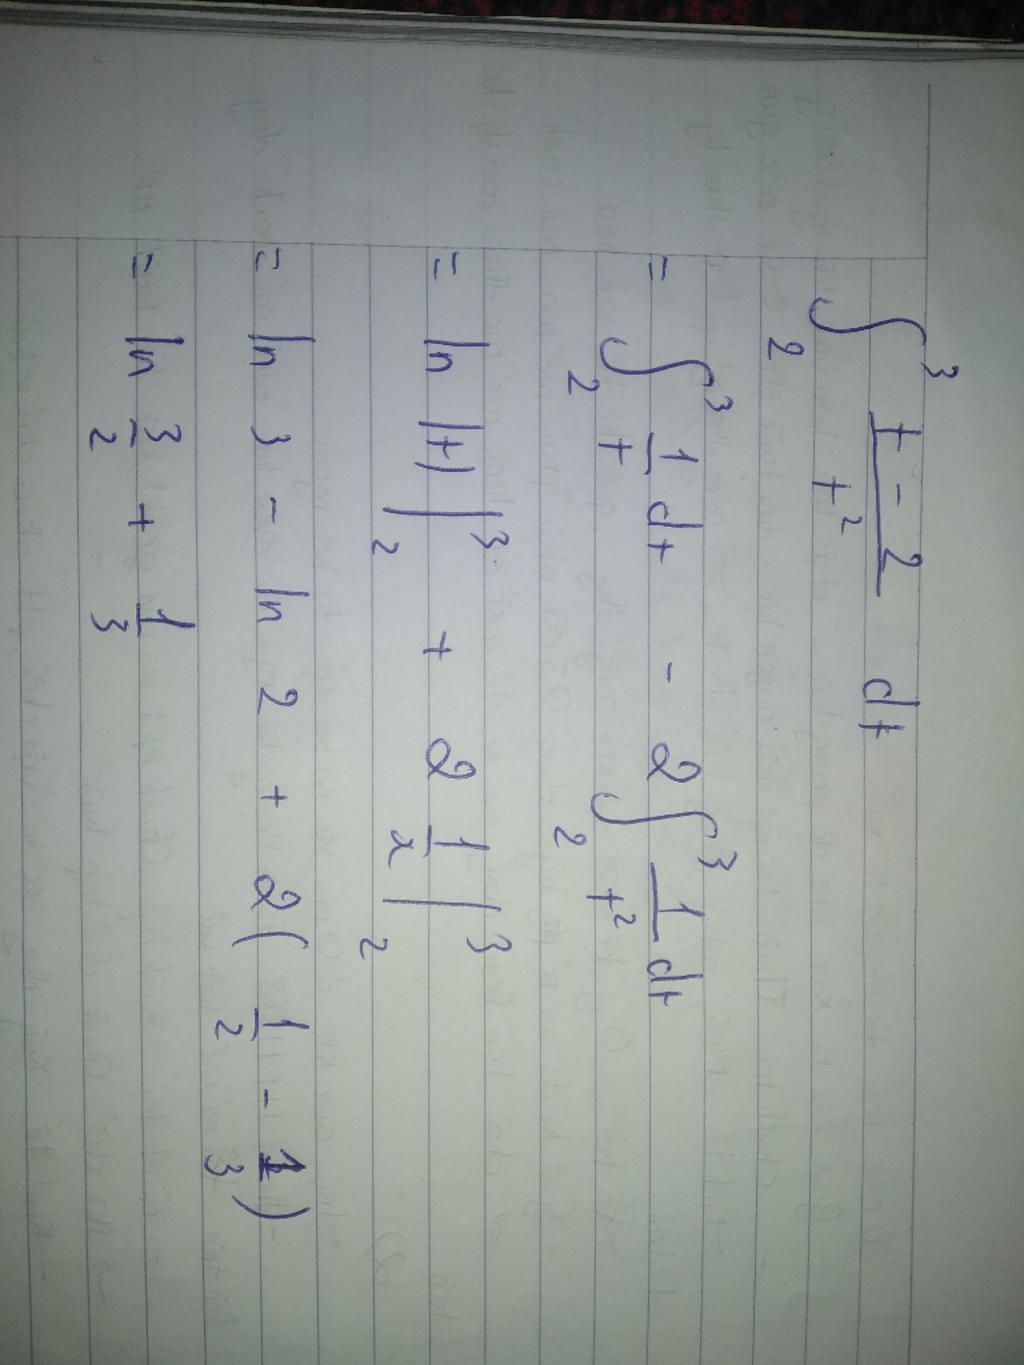 ∫₂³ (t - 2)/t² dt
= ∫₂³ 1/t dt - 2 ∫₂³ 1/t² dt
= ln |t| |₂³ + 2 1/x |₂³
= ln 3 - ln 2 + 2( 1/2 - 1/3 )
= ln 3/2 + 1/3